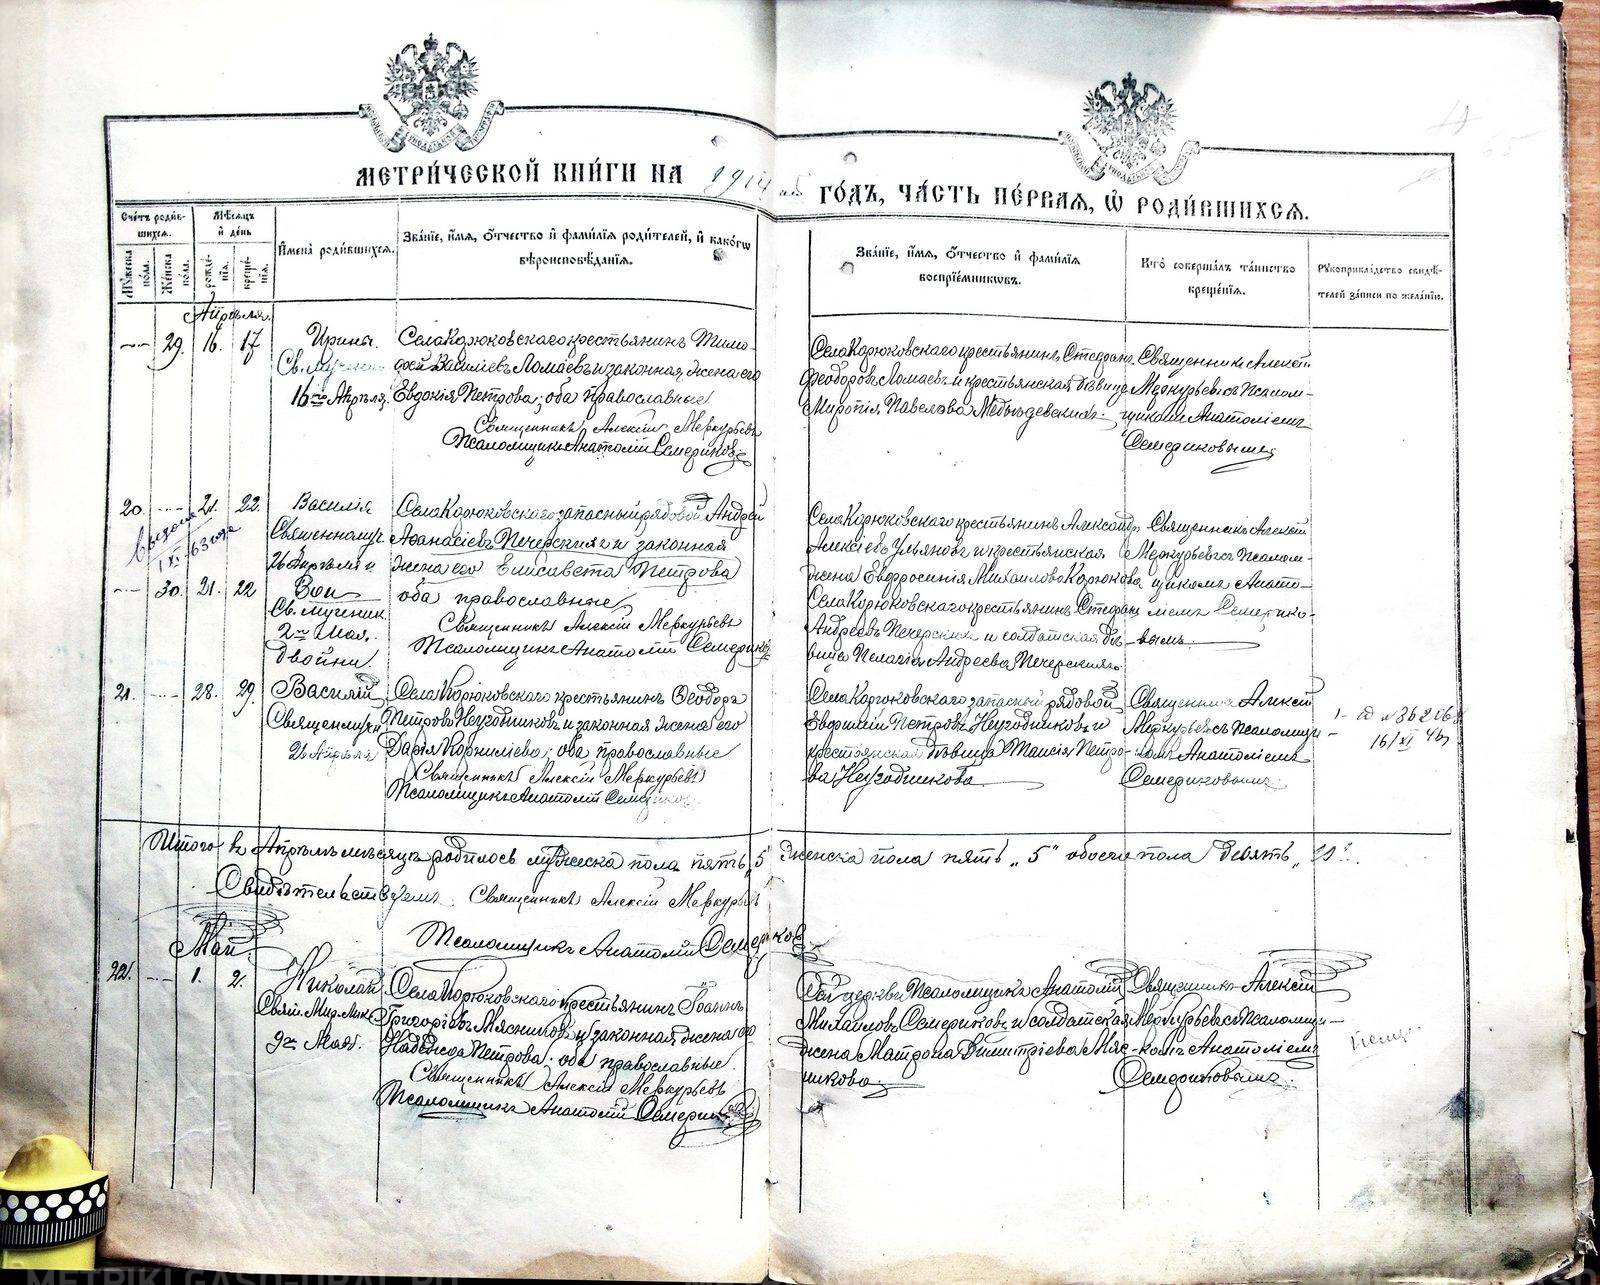 МЕТРИ́ЧЕСКОЙ КНИ́ГИ НА 1914 ый ГО́ДЪ, ЧА́СТЬ ПЕ́РВАЯ, Ѿ РОДИ́ВШИХСѦ.
Сче́тъ роди́в-
шихсѧ.
Мꙋ́жеска по́ла.
Же́нска по́ла.
Мѣ́сѧцъ и де́нь
рожде́-
нїѧ.
креще́-
нїѧ.
Имена̀ роди́вшихсѧ.
Зва́нїе, и́мѧ, о́тчество и фами́лїѧ роди́телей, и како́гѡ
вѣроисповѣ́данїѧ.
Зва́нїе, и́мѧ, о́тчество и фами́лїѧ
воспрїе́мникѡвъ.
Кто̀ соверша́лъ та́инство
креще́нїѧ.
Рꙋкоприкла́дство свидѣ́-
телей за́писи по жела́нїю.
Апрѣля.
29. 16. 17
Ирина.
Св. Мучени
16го Апрѣля.
Села Корюковскаго крестьянинъ Тимо-
фей Василіевъ Ломаевъ и законная жена его
Евдокія Петрова; оба православные
Священникъ Алексій Меркурьевъ
Псаломщикъ Анатолій Семериковъ
Села Корюковскаго крестьянинъ Стефанъ
Феодоровъ Ломаевъ и крестьянская дѣвица
Миропія Павелова Медвѣдевскихъ.
Священникъ Алексій
Меркурьевъ съ Псалом-
щикомъ Анатоліемъ
Семериковымъ
20. 21. 22.
Василія
Священномуч.
26 Апрѣля и
30. 21. 22
Зои
Св. мучениц
2го Мая.
двойни
1 XI-63 года
Села Корюковскаго запасный рядовой Андрей
Аѳанасіевъ Печерскихъ и законная
жена его Елисавета Петрова
оба православные
Священникъ Алексій Меркурьевъ
Псаломщикъ Анатолій Семериковъ
Села Корюковскаго крестьянинъ Александръ
Алексіевъ Ульяновъ и крестьянская
жена Евфросинія Михаилова Корюкова
Села Корюковскаго крестьянинъ Стефанъ
Андреевъ Печерскихъ и солдатская дѣ-
вица Пелагія Андреева Печерскихъ
Священникъ Алексій
Меркурьевъ съ Псалом-
щикомъ Анато-
ліемъ Семерико-
вымъ.
21. 28. 29.
Василій
Священмуч
26 Апрѣля
Села Корюковскаго крестьянинъ Ѳеодоръ
Петровъ Неугодниковъ и законная жена его
Дарія Корниліева; оба православные
Священникъ Алексій Меркурьевъ
Псаломщикъ Анатолій Семериков
Села Корюковскаго запасной рядовой
Евфимій Петровъ Неугодниковъ и
крестьянская дѣвица Таисія Петро-
ва Неугодникова
Священникъ Алексій
Меркурьевъ съ Псаломщи-
комъ Анатоліемъ
Семериковымъ.
16/XI 46
Итого въ Апрѣлѣ мѣсяцѣ родилось мужеска пола пять „5" женска пола пять „5" обоего пола девять „10".
Свидѣтельствуемъ, Священникъ Алексій Меркурьевъ
Псаломщикъ Анатолій Семериков
Май.
22. 1. 2.
Николай
Свят. Мир-Лик
9го Мая.
Села Корюковскаго крестьянинъ Іоаннъ
Григоріевъ Мясниковъ и законная жена его
Надежда Петрова. оба православные.
Священникъ Алексій Меркурьевъ
Псаломщикъ Анатолій Семериковъ
Сей церкви Псаломщикъ Анатолій
Михаиловъ Семериковъ и солдатская
жена Матрона Димитріева Мяс-
никова.
Священникъ Алексій
Меркурьевъ съ Псаломщи-
комъ Анатоліемъ
Семериковымъ.